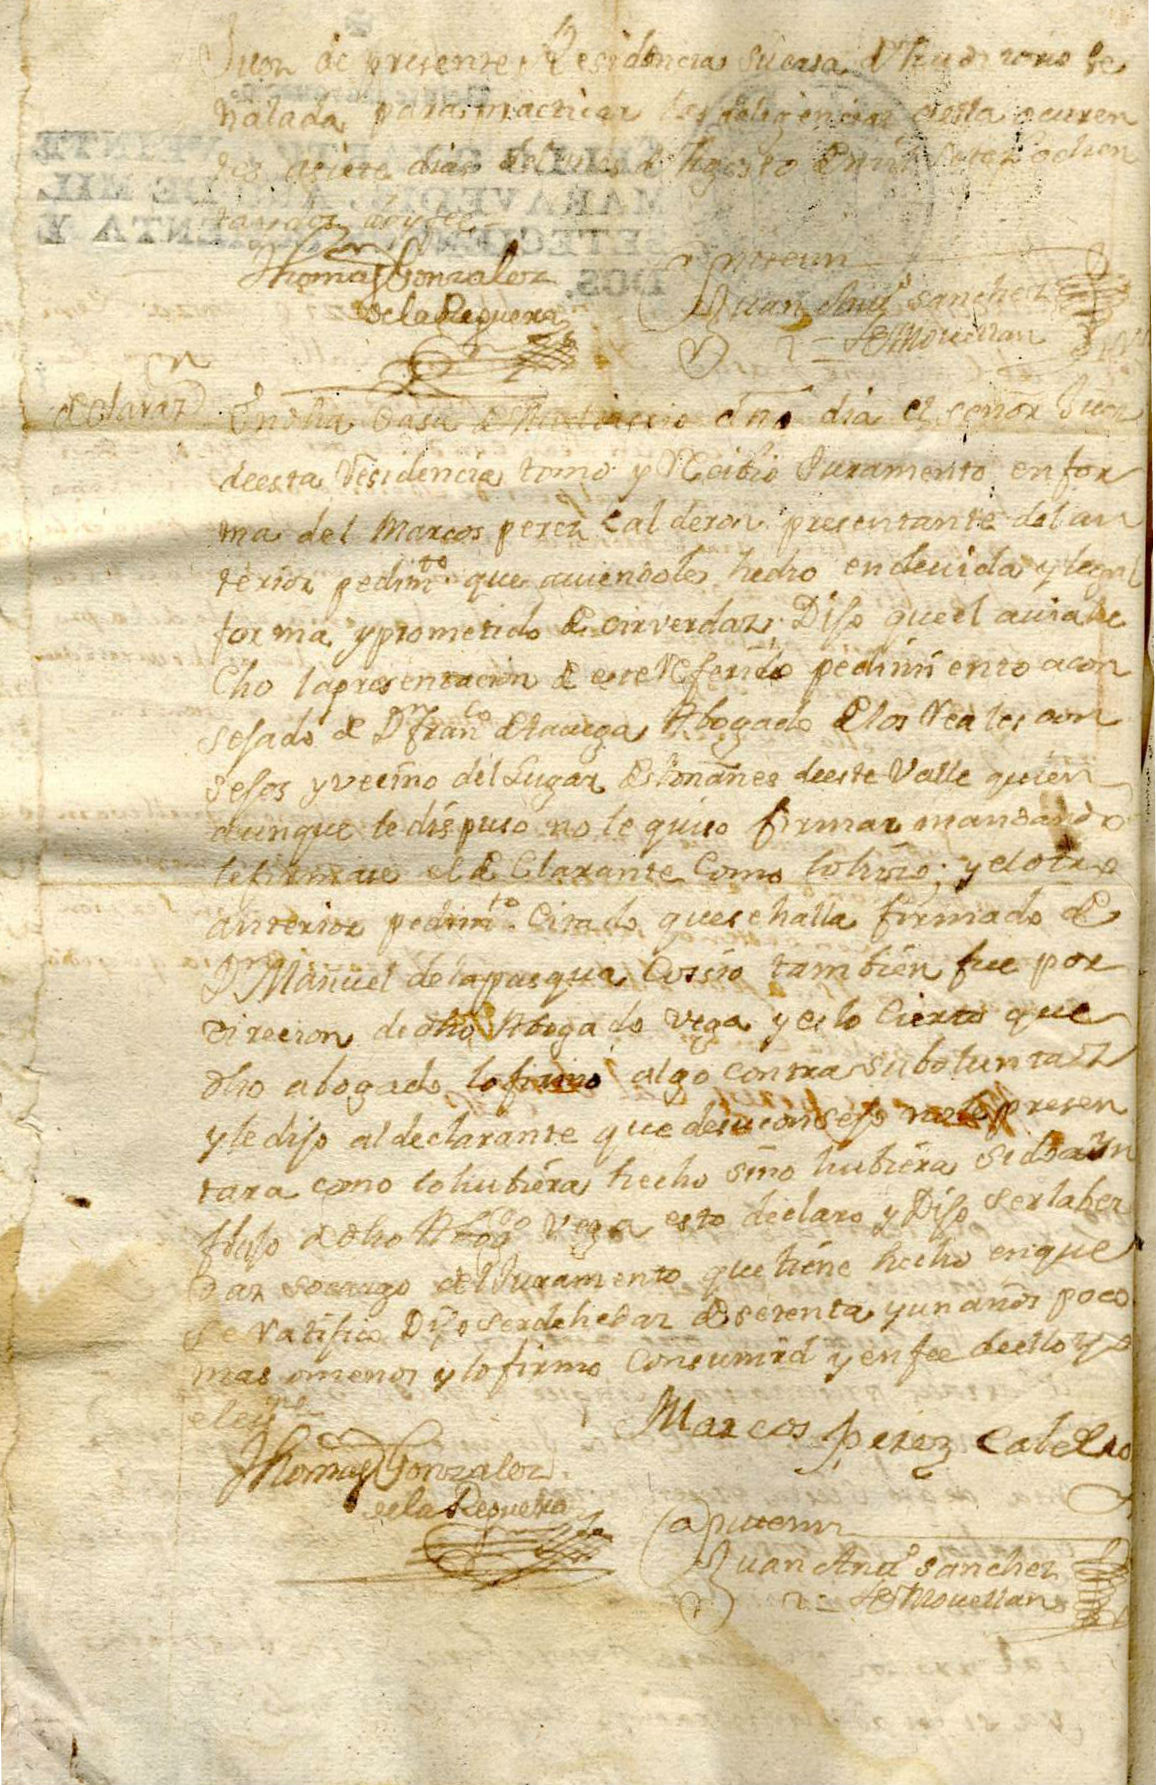 Juez de presente Residencia su casa d Audiencia se
ñalada para practicar las deligencias desta ocurren
zia a siete dias del mes de Agosto de mil setez.s ochen
ta y dos doy fee
Thomas Gonzalez
de la Reguera
Ante mi
Juan Anttº Sanchez
de Mouellan
declaraz.on
En dha Casa de Audiencia dho dia el señor Juez
deesta Residencia tomo y Recibio Juramento en for
ma del Marcos perez Calderon presentante del an
terior pedim.to que auiendole hecho en deuida y legal
forma y prometido decir verdaz; Dijo que el auia he
cho la presentacion de este Referido pedimiento acon
sejado de D.n Fran.co de la uega Abogado de los Reales con
sejos y vecino del Lugar de deeste Valle quien
aunque le dispuso no le quiso firmar mandando
le firmase el de Clarante Como lo hizo; y el otro
anterior pedim.to Citado que se halla firmado de
D.n Manuel de la pasqua Cossio tambien fue por
direcion de dho Abogado Vega y es lo Cierto que
dho abogado lo firmo algo contra su boluntaz
y le dijo al declarante que de su consejo no le presen
tara como lo hubiera hecho sino hubiera sido a yn
flujo de dho Abog.do Vega esto declaro y Dijo ser la ber
daz so cargo del Juramento que tiene hecho en que
se ratifico Dijo ser de hedaz de setenta y un años poco
mas omenos y lo firmo Con su mrd y en fee deello yo
el es.no
Marcos perez Calderon
Thomas Gonzalez
de la Reguera
Ante mi
Juan Anttº Sanchez
de Mouellan